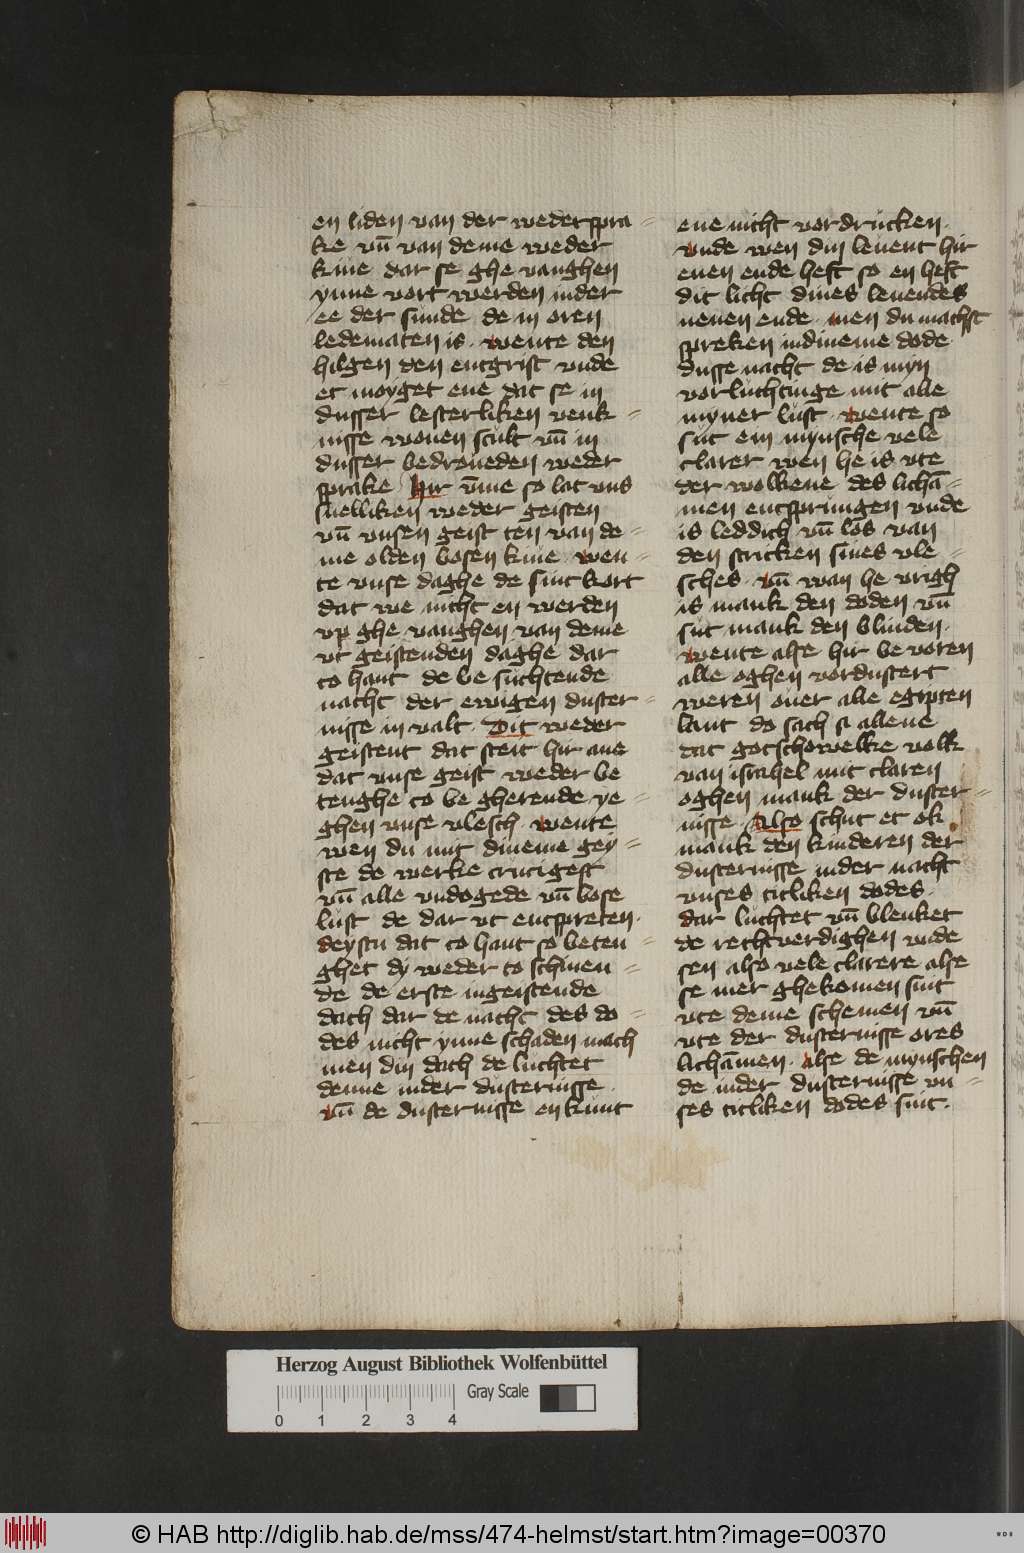 en liden van der wederspra-
ke vn̄ van deme weder
kiue dar se ghe vanghen
ynne vort werden inder
ee der sunde de in oren
ledematen is. wente den
hilgen den entgrist vnde
et moyget ene dat se in
dusser lesterliken venk-
nisse wonen scult vn̄ in
dusser bedroueden weder
sprake Hir v̄me so lat vns
snelliken weder geisten
vn̄ vnsen geist ten van de-
me olden bosen kiue wen-
te vnse daghe de sint kort
dat we nicht en werden
vp ghe vanghen van deme
vt geistenden daghe dar
to hant de be suchtende
nacht der ewigen duster-
nisse in valt. Dit weder
geistent dat steit hir ane
dat vnse geist weder be
tenghe to be gherende ye-
ghen vnse vlesch. wente
wen du mit dineme gey-
ste de werke crucigest
vn̄ alle vndogede vn̄ bose
lust de dar vt entspreten.
deystu dat to hant so beten-
ghet dy weder to schinen-
de de erste ingeistende
dach dar de nacht des do-
des nicht ynne schaden mach
men din dach de luchtet
denne inder dusternisse.
vn̄ de dusternisse en kunt
ene nicht vordrucken.
vnde wen din leuent hir
enen ende heft so en heft
dit licht dines leuendes
nenen ende. men du machst
spreken indineme dode
dusse nacht de is myn
vorluchtinge mit alle
myner lust. wente so
sut ein mynsche vele
clarer wen he is vte
der wolkene des lichā-
men entsprungen vnde
is leddich vn̄ los van
den stricken sines vle-
sches. vn̄ wan he vrigh
is mank den doden vn̄
sut mank den blinden.
wente alse hir be voren
alle oghen vordustert
weren ouer alle egipten
lant do sach a allene
dat gotschowelke volk
van israhel mit claren
oghen mank der duster-
nisse. Also schut et ok
mank den kinderen der
dusternisse inder nacht
vnses titliken dodes.
dar luchtet vn̄ blenket
de rechtverdighen vnde
sen also vele clarere alse
se mer ghekomen sint
vte deme schemen vn̄
vte der dusternisse ores
lichāmen. alse de mynschen
de inder dusternisse vn-
ses titliken dodes sint.
Herzog August Bibliothek Wolfenbüttel
Gray Scale
0 1 2 3 4
© HAB http://diglib.hab.de/mss/474-helmst/start.htm?image=00370